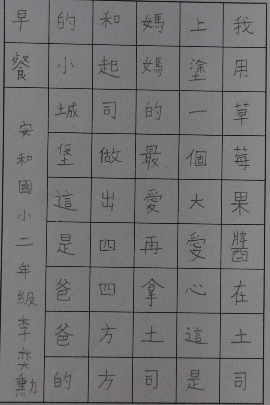 我用草莓果醬在土司
上塗一個大愛心這是
媽媽的最愛再拿土司
和起司做出四四方方
的小城堡這是爸爸的
早餐
安和國小二年級李奕勳